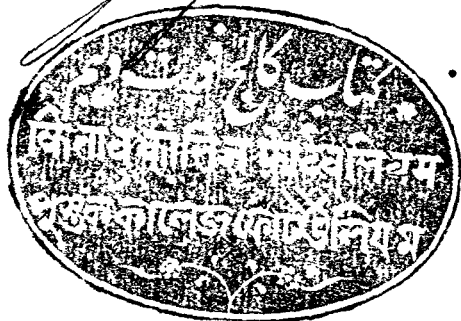 کتاب کالج فورٹ ولیم
किताब कालिज फोर्ट वुलियम
পুস্তক কালেজ ফোর্ট উলিয়ম